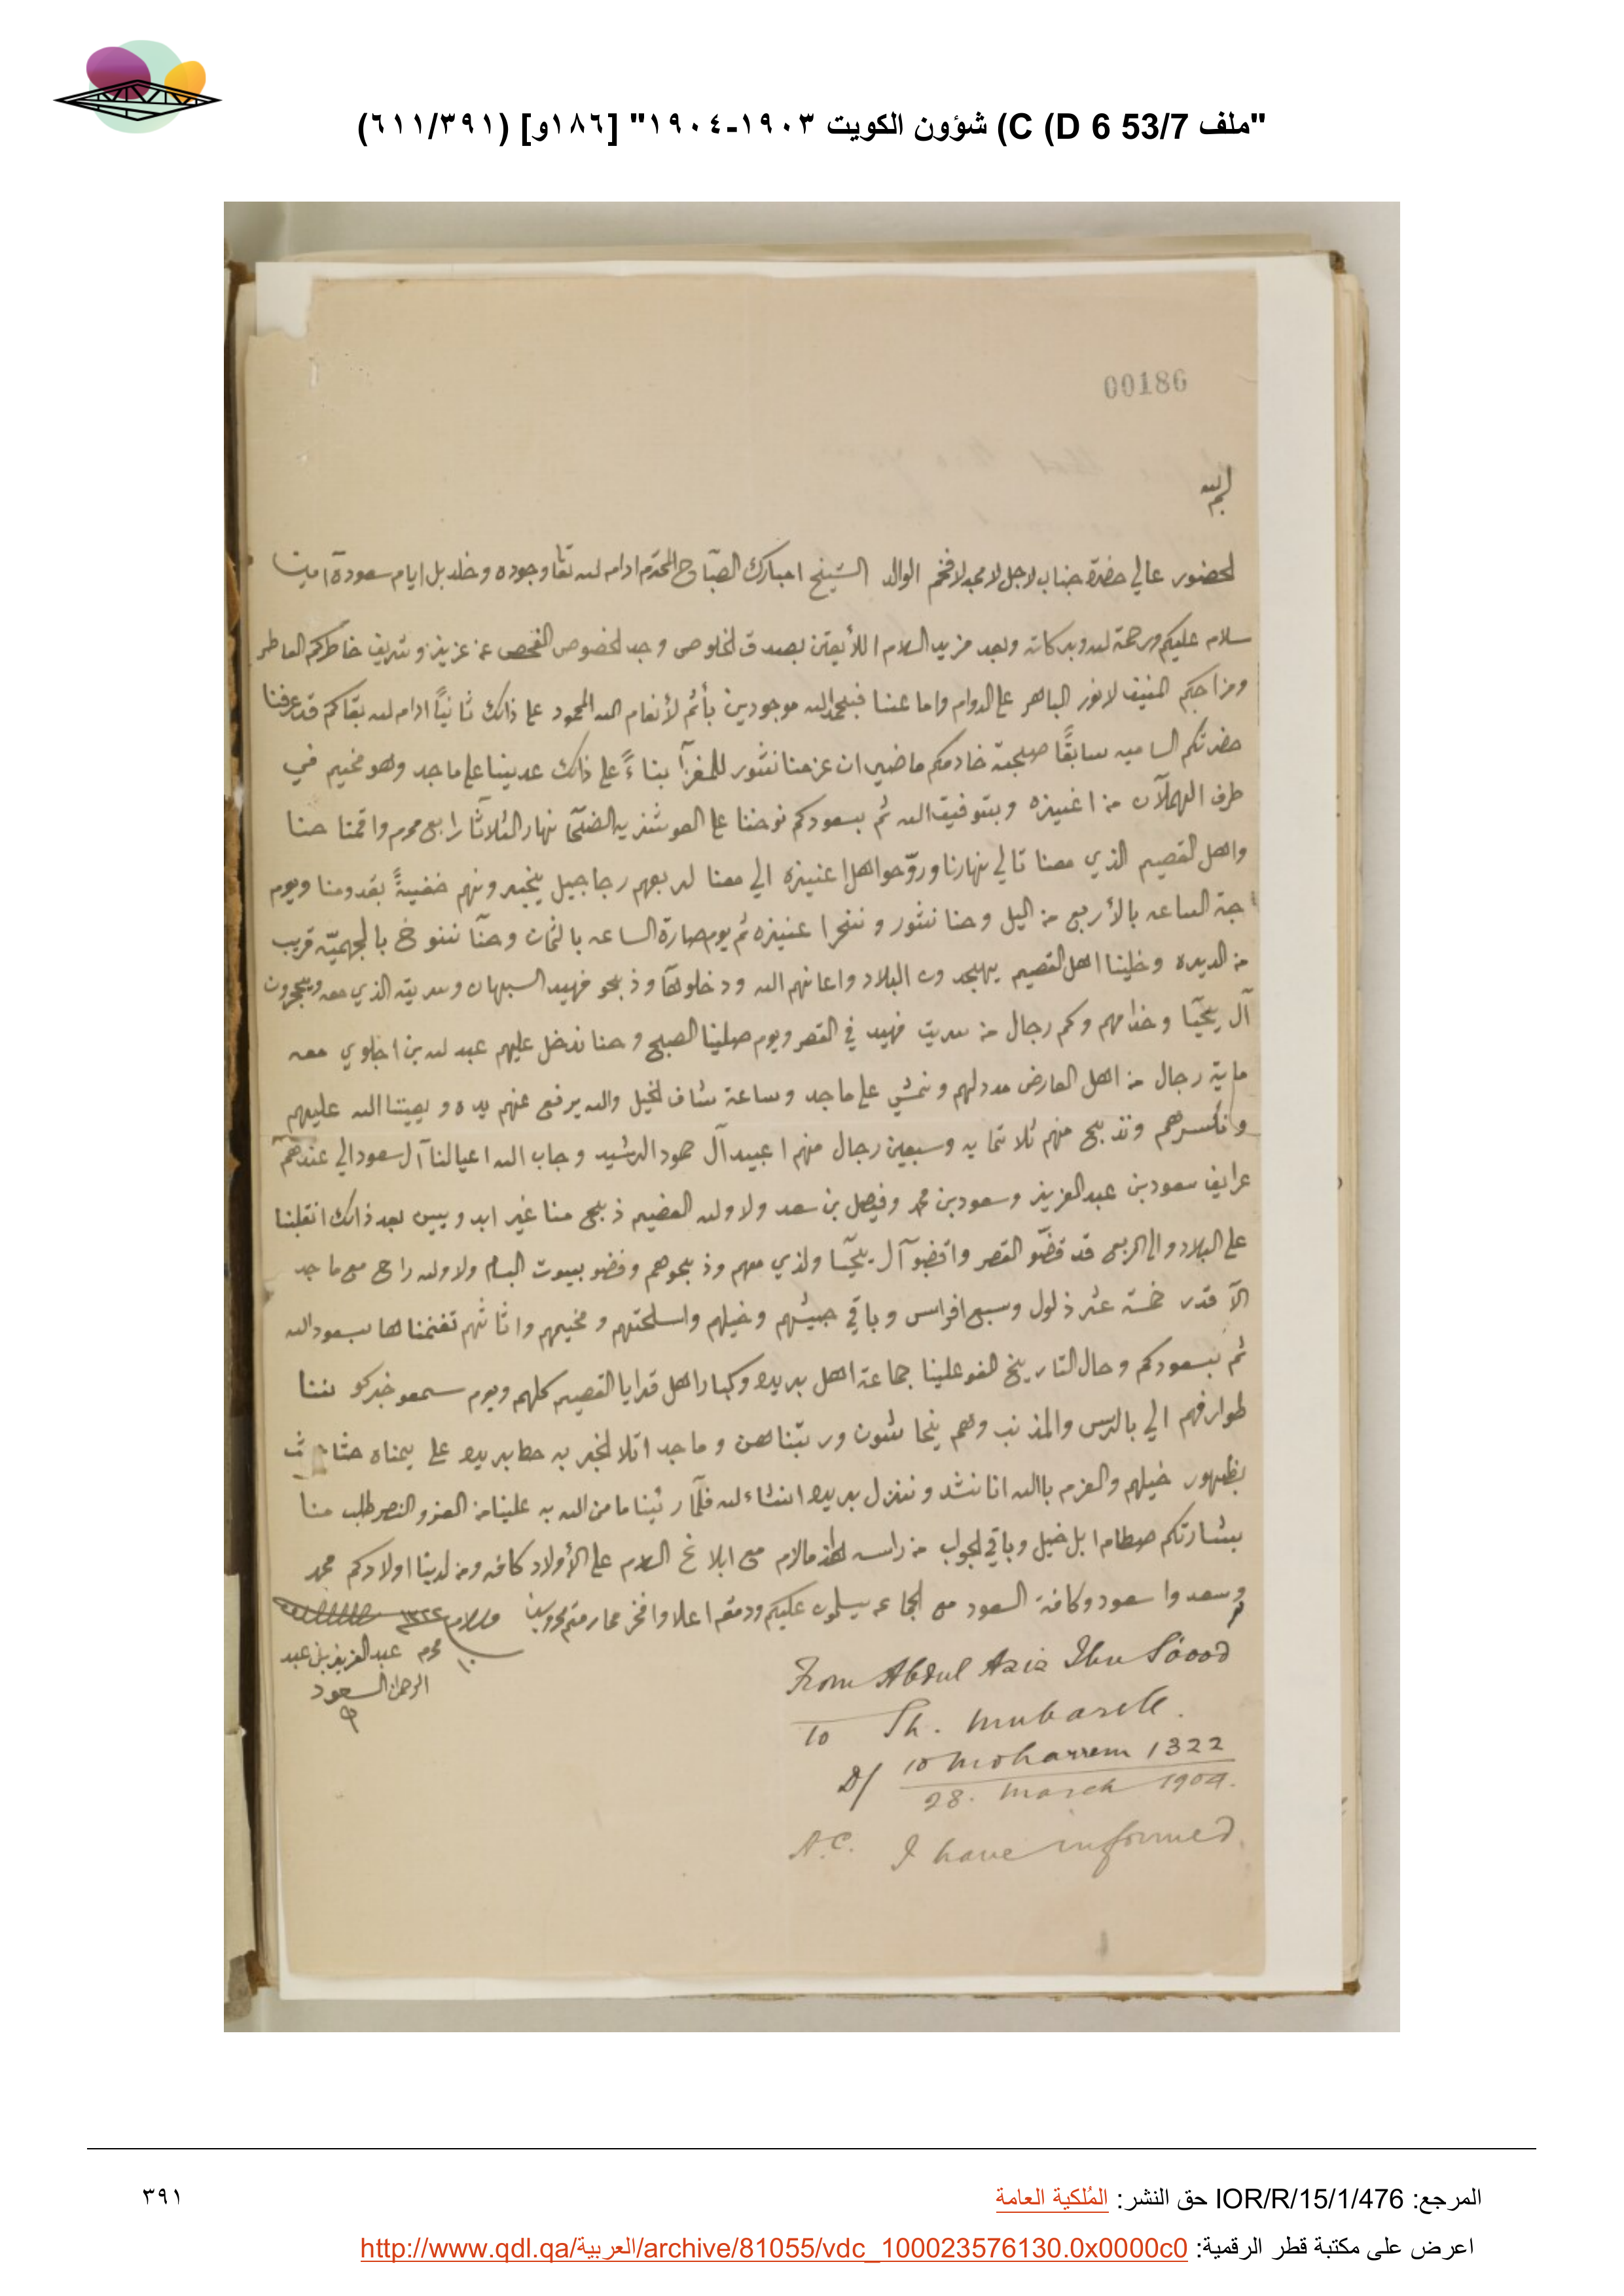 "ملف 53/7 D 6) C) شؤون الكويت ١٩٠٣-١٩٠٤" [١٨٦و] (٦١١/٣٩١)
00186
لحضور عالي حضرة جناب لاجل لامجد لافخم الوالد الشيخ امبارك الصباح المحترم ادام الله تعا وجوده وخلد بل ايام سعودة امين
سلام عليكم ورحمة الله وبركاته وبعد مزيد السلام اللأيقتين بصدق لخلوص وجد لخصوص الفحص عن عزيز وشريف خاطركم العاطر
ومزاجكم المنيف لانور الباهر على الدوام واما عننا فبلحمد الله موجودين بأتم لأنعام الله المحمود على ذالك ثانياً ادام الله بقاكم قد عرفنا
حضرتكم الساميه سابقاً صحبة خادمكم ماضي ان عزمنا نثور للمغزآ بناءً على ذالك عدينا على ماجد وهو مخيم في
طرف الهملآن من اعنيزه وبتوفيق الله ثم بسعودكم نوخنا على العوشزيه الضحآ نهار الثلاثآ رابع محرم واقمنا حنا
واهل القصيم الذي معنا تالي نهارنا وروّحوا اهل اعنيزه الي معنا لربعهم رجاجيل يخبرونهم خفيةً بقدومنا ويوم
جة الساعه بالأربع من اليل وحنا نثور وننحر اعنيزه ثم يوم صارة الساعه بالثمان وحنآ ننوخ بالجهميّه قريب
من الديره وخلينا اهل القصيم يهجدون البلاد واعانهم الله ودخلوهآ وذبحو فهيد السبهان وسريته الذي معه ويحجرون
آل يحيّا وخدامهم وكم رجال من سريت فهيد في القصر ويوم صلينا الصبح وحنا ندخل عليهم عبد الله بن اجلوي معه
ماية رجال من اهل العارض مدد لهم ونمشي على ماجد وساعة شاف لخيل والله يرفع عنهم يده ويعيننا الله عليهم
وانكسرهم ونذبح منهم ثلاثمايه وسبعين رجال منهم اعبيد آل حمود الرشيد وجاب الله اعيالنا آل سعود الي عندهم
عرايف سعود بن عبد العزيز وسعود بن محمد وفيصل بن سعد ولا ولله العضيم ذبح منا غير ابدويين بعد ذالك انقلبنا
على البلاد والى الربع قد قضّو القصر واقضبوآ آل يحيّا ولذي معهم وذبحوهم وفضو بيوت البسام ولا ولله راح مع ماجد
الآ قدر خمسة عشر ذلول وسبع افراس وباقي جيشهم وخيلهم واسلحتهم ومخيمهم واثاثهم تغنمناها بسعود الله
ثم بسعودكم وحال التاريخ لفو علينا جماعة اهل بريده وكبار اهل قرايا القصيم كلهم ويوم سمعو خبر
طوارفهم الي بالرس والمذنب وهم ينحاشون ورتبناهن وماجد اتلا لخبر به حط بريده على يمناه
بظهور خيلهم والعزم باالله انا نشد وننزل بريده انشاء الله فلمّا رئينا ما من الله به علينا من العز والنصر طلب منا
بشارتكم صطام ابل خيل وباقي لجواب من راسه هذا مالزم مع ابلاغ السلام على الأولاد كافه ومن لدينا اولادكم محمد
وسعد واسعود وكافة السعود مع الجماعه يسلمون عليكم ودمتم اعلا وافخر محارمتم محروسين والسلام ١٣٢٢
١٠ محرم عبد العزيز بن عبد
الرحمن السعود
From Abdul Aziz Ibn Sáood
To Sh. Mubarek.
D/ 10 Moharrem 1322
28. March 1904.
A.C. I have informed
المرجع: IOR/R/15/1/476 حق النشر: المُلكية العامة
٣٩١
اعرض على مكتبة قطر الرقمية: http://www.qdl.qa/العربية/archive/81055/vdc_100023576130.0x0000c0